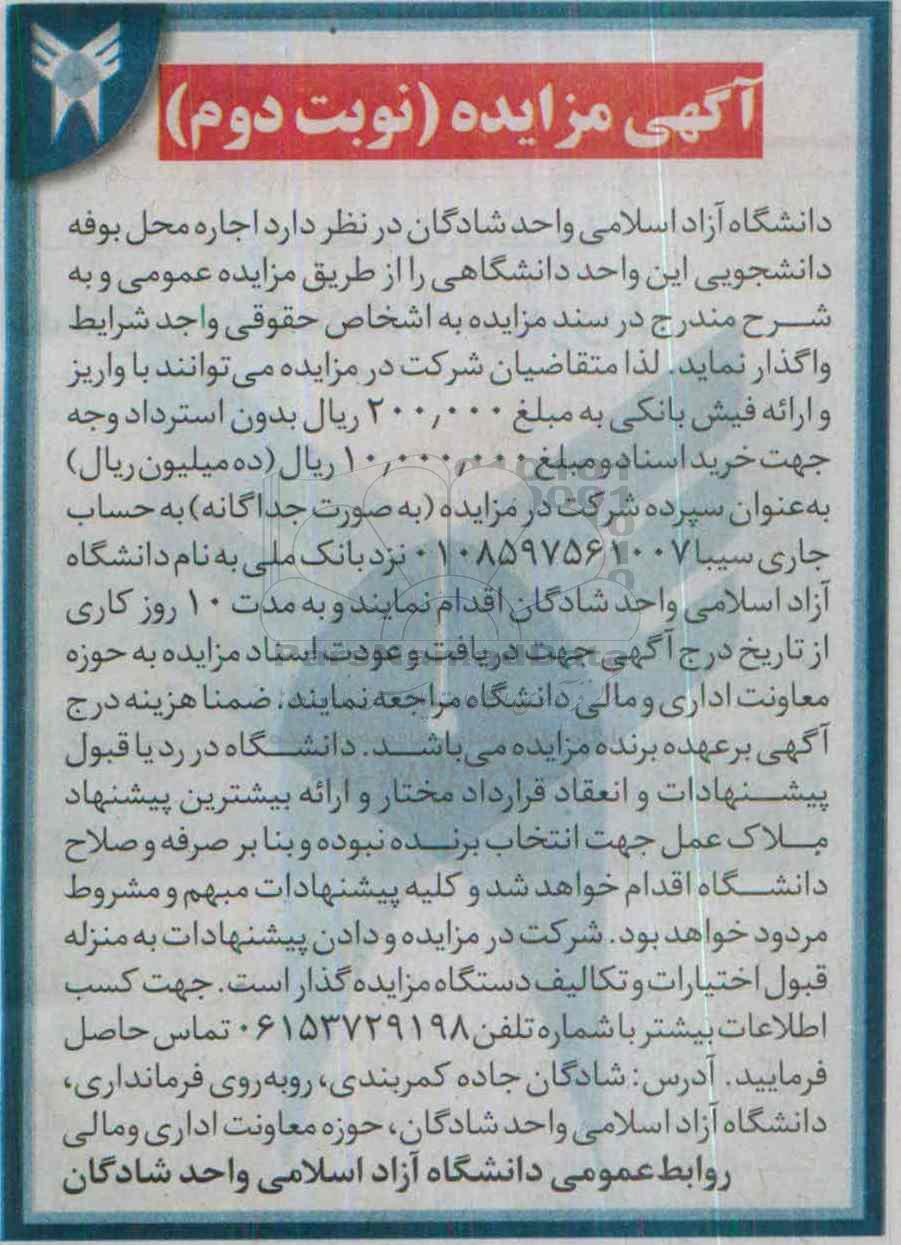 آگهی مزایده (نوبت دوم)
دانشگاه آزاد اسلامی واحد شادگان در نظر دارد اجاره محل بوفه
دانشجویی این واحد دانشگاهی را از طریق مزایده عمومی و به
شرح مندرج در سند مزایده به اشخاص حقوقی واجد شرایط
واگذار نماید. لذا متقاضیان شرکت در مزایده می‌توانند با واریز
و ارائه فیش بانکی به مبلغ ۲۰۰٫۰۰۰ ریال بدون استرداد وجه
جهت خرید اسناد و مبلغ ۱۰٫۰۰۰٫۰۰۰ ریال (ده میلیون ریال)
به‌عنوان سپرده شرکت در مزایده (به صورت جداگانه) به حساب
جاری سیبا ۰۱۰۸۵۹۷۵۶۱۰۰۷ نزد بانک ملی به نام دانشگاه
آزاد اسلامی واحد شادگان اقدام نمایند و به مدت ۱۰ روز کاری
از تاریخ درج آگهی جهت دریافت و عودت اسناد مزایده به حوزه
معاونت اداری و مالی دانشگاه مراجعه نمایند. ضمنا هزینه درج
آگهی بر عهده برنده مزایده می‌باشد. دانشگاه در رد یا قبول
پیشنهادات و انعقاد قرارداد مختار و ارائه بیشترین پیشنهاد
ملاک عمل جهت انتخاب برنده نبوده و بنا بر صرفه و صلاح
دانشگاه اقدام خواهد شد و کلیه پیشنهادات مبهم و مشروط
مردود خواهد بود. شرکت در مزایده و دادن پیشنهادات به منزله
قبول اختیارات و تکالیف دستگاه مزایده گذار است. جهت کسب
اطلاعات بیشتر با شماره تلفن ۰۶۱۵۳۷۲۹۱۹۸ تماس حاصل
فرمایید. آدرس: شادگان جاده کمربندی، روبه‌روی فرمانداری،
دانشگاه آزاد اسلامی واحد شادگان، حوزه معاونت اداری ومالی
روابط عمومی دانشگاه آزاد اسلامی واحد شادگان